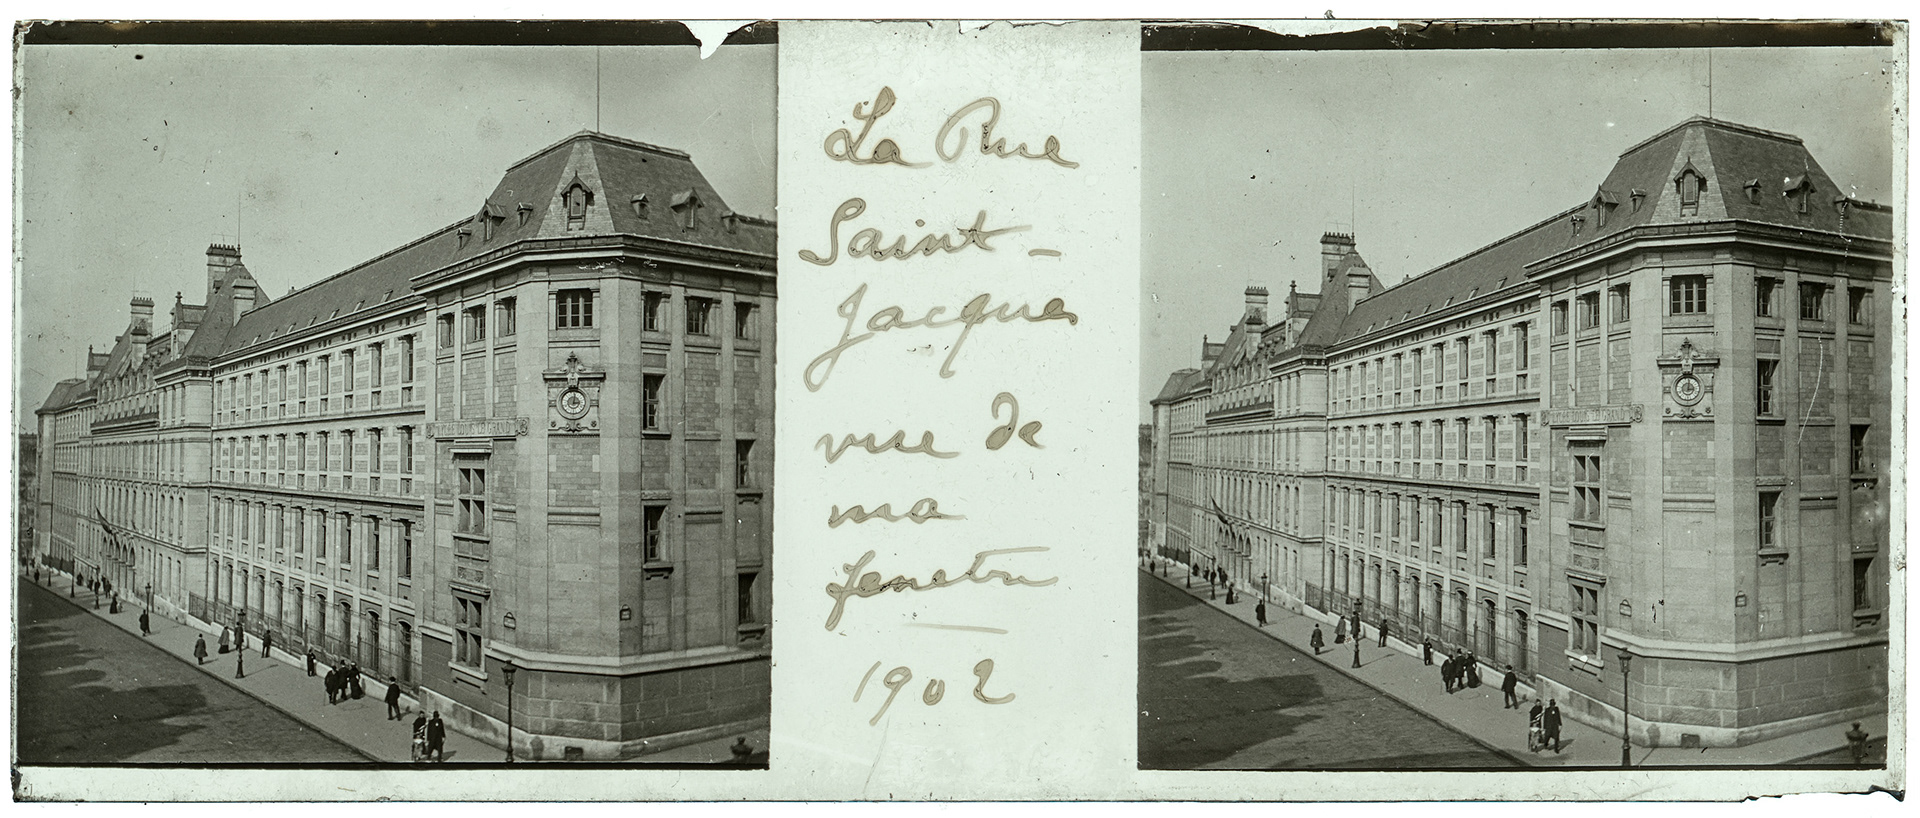 La Rue
Saint-
Jacques
vue de
ma
fenetre
1902
LYCEE LOUIS LE GRAND
LYCEE LOUIS LE GRAND